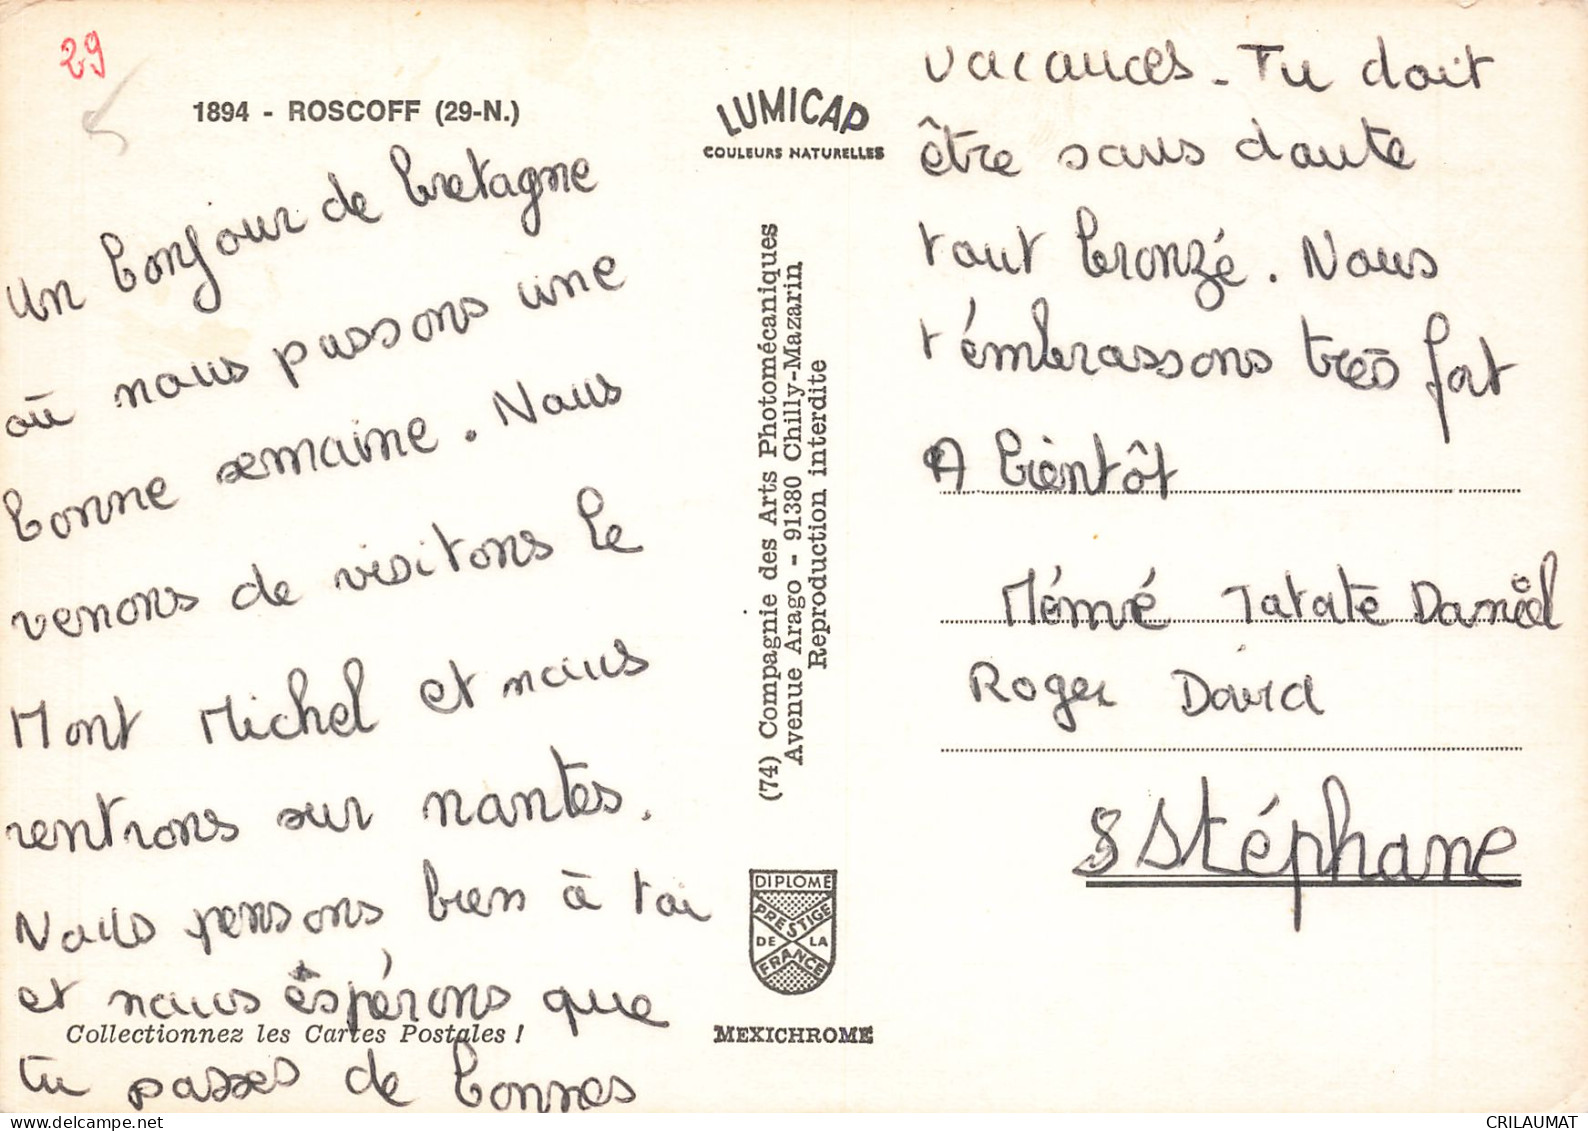 29
1894 - ROSCOFF (29-N.)
un bonjour de bretagne
où nous passons une
bonne semaine. Nous
venons de visitons le
Mont Michel et nous
rentrons sur nantes.
Nous pensons bien à toi
et nous éspérons que
Collectionnez les Cartes Postales !
tu passes de bonnes
LUMICAP
COULEURS NATURELLES
(74) Compagnie des Arts Photomécaniques
Avenue Arago - 91380 Chilly-Mazarin
Reproduction interdite
DIPLOME
PRESTIGE
DE LA
FRANCE
MEXICHROME
vacances - Tu doit
être sans doute
tout bronzé. Nous
t'émbrassons très fort
A bientôt
Mémé Tatate Daniel
Roger David
Stéphane
CRILAUMAT